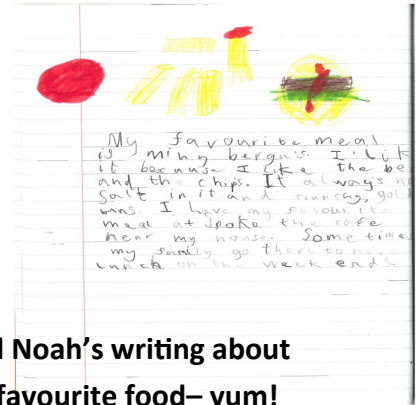 My favourite meal
is miny bergus. I lik
it because I like the be
and the chips. It always
salt in it and crunchy, gol
buns. I have my favourite
meal at spoke the cafe
near my house. Some time
my family go there to have
lunch on the week ends
Noah's writing about
favourite food– yum!